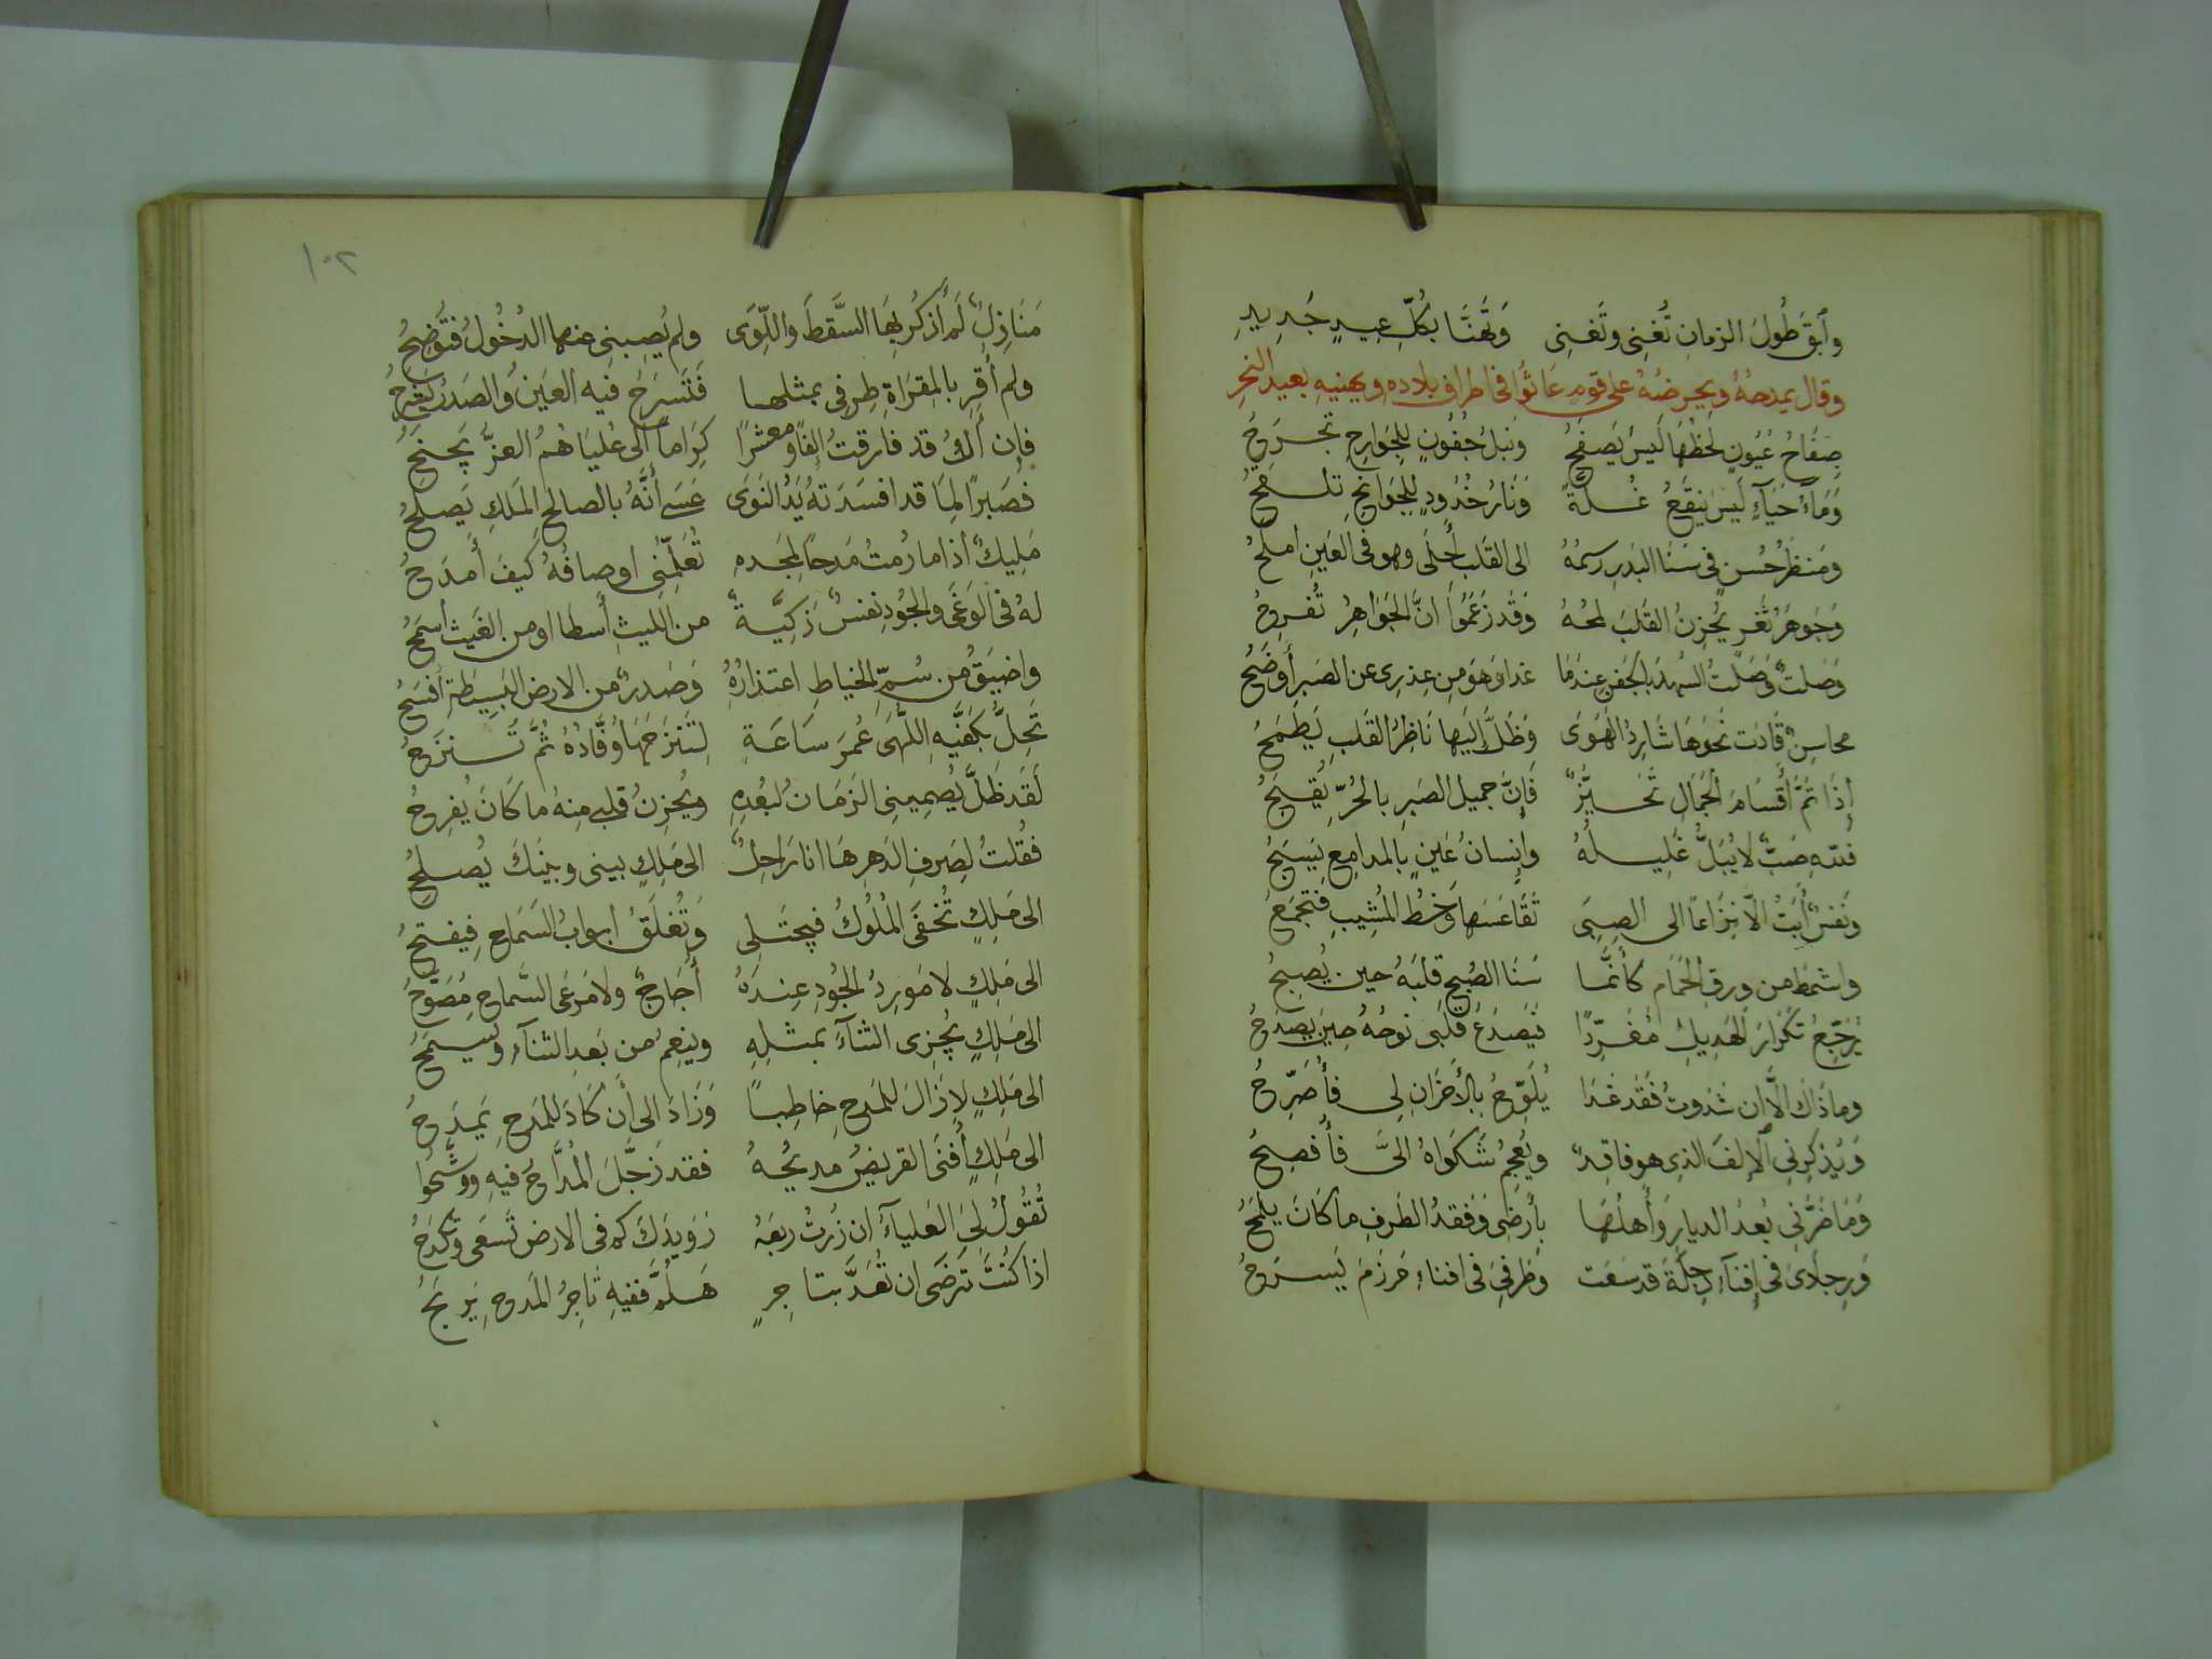 وَابقَ طُولَ الزمانِ تُغنِى وتَغنِى وَتَهَنَّا بكُلِّ عِيدٍ جَدِيدِ
وقال يمدحهُ ويحرضهُ على قومٍ عَاثُوا فى اطراف بلاده ويهنيهِ بعيد النحرِ
صِفَاحُ عُيُونٍ لَحظُهَا لَيسَ يَصفَحُ وَنَبلُ جُفُونٍ لِلجَوَارِحِ تَجرَحُ
وَمَآءُ حَيَآءٍ لَيسَ يَنقَعُ غُلَّةً وَنَارُ خُدُودٍ لِلجَوَانحِ تلفَحُ
وَمَنظَرُ حُسنٍ فى سَنَا البَدرِ رسمُهُ الى القَلبِ أَحلَى وهو فى العَينِ املَحُ
وَجَوهَرُ ثَغرٍ يُحزِنُ القَلبَ لمحهُ وَقَد زَعَمُوا انَّ الجَوَاهِرَ تُفرِحُ
وَصَلتُ وَصَلتُ السُهدَ بالجَفنِ عِندَمَا غدا وَهوَ مِن عِذرِى عن الصَبرِ أَوضَحُ
محاسِنُ قَادَت نَحوَهَا شَارِدَ الهَوَى وَظَلَّ إِلَيهَا نَاظِرُ القَلبِ يَطمَحُ
إِذَا تمَّ أَقسَامَ الجَمَالِ تَحَيُّزٌ فَإِنَّ جميل الصَبرِ بالحُرِّ يَقبَحُ
فللّه صَبٌّ لا يُبَلُّ غَلِيلُهُ وإِنسانُ عَينٍ بالمدامِعِ يَسبَحُ
ونَفسٌ أَبَت الّا نِزَاعاً الى الصِبَى تَقَاعَسَها وَخطُ المَشِيبِ فتجمَحُ
واشمَط من وُرقِ الحَمَامِ كأَنمَّا سَنَا الصُبحِ قلبَهُ حين يُصبِحُ
يُرَجِّعُ تَكرَارَ الهَدِيلِ مُغَرِّدًا فيَصدَعُ قَلبى نوحُهُ حِينَ يَصدَحُ
وما ذَاك الّا ان شدوتُ فَقَد غَدَا يُلَوِّحُ بِالأَحزَانِ لِى فأُصَرِّحُ
وَيُذكِرنِى الإِلفَ الذِى هو فاقِدٌ ويُعجِمُ شَكوَاهُ الىَّ فأُفصِحُ
وَمَا ضَرَّنِى بُعدُ الديارِ وَأَهلُهَا بِأَرضِى وَفَقدُ الطَرفِ ما كَانَ يَلمَحُ
وَرِجلاىَ فى إِفنآءِ دِجلَةَ قد سَعَت وَطَرفِى فى افناءِ مَرزَمَ يَسرَحُ
١٠٢
مَنَازِلُ لَم أَذكُر بِهَا السَّقطَ واللِّوَى ولم يُصبِنِى عنها الدُخُولُ فتُوضِحُ
ولم أَقرِ بالمِقرَاةِ طِرفِى بمثلها فَتَسرَحُ فيه العَينُ والصَدرُ يُشرَحُ
فإِن أَكُ قد فارقتُ إِلفًا ومعشرًا كِرَاماً الى عُليَاهُمُ العزُّ يَجنَحُ
فَصَبرًا لِمَا قد افسَدَتهُ يَدُ النَوَى عَسَى أَنَّهُ بالصالح المَلَكِ يَصلحُ
مَلِيكٌ اذا ما رُمتُ مَدحاً لمجَدِهِ تُعَلِّمُنِى اوصافُهُ كَيفَ أَمدَحُ
لهُ فى الوَغَى والجُودِ نفسٌ زَكِيَّةٌ من الليثِ أَسطا او من الغَيثِ أسمَحُ
واضيَقُ من سُمِّ الخياطِ اعتذارُهُ وَصَدرٌ من الارضِ البَسِيطَةِ أَفسَحُ
تَحِلُّ بكَفَّيهِ اللُّهَى عُمرَ سَاعَةٍ لِتَنزَحهَا وُفَّادُهُ ثُمَّ تَنزَحُ
لَقَد ظَلَّ يُصمِينِى الزَمَانُ لبُعدِهِ ويُحزِنُ قلبى مِنهُ ما كَانَ يُفرِحُ
فقُلتُ لِصَرفِ الدَهرِ هَا انا رَاحِلٌ الى مَلِكٍ بينى وبَينَكَ يُصلحُ
الى مَلِكٍ تُخفَى المُلُوكُ فيَجتَلِى وَتُغلَقُ ابوابُ السَمَاحِ فيفتحُ
الى مَلِكٍ لا مَورِدُ الجُودِ عِندَهُ أُجَاجٌ ولا مَرعَى السَّماحِ مُصَوَّحُ
الى مَلِكٍ يُجزِى الثنآءَ بمثلِهِ وينعِمُ من بَعدِ الثنآءِ وَيَسمَحُ
الى مَلِكٍ لا زَالَ للمَدحِ خاطِباً وَزَادَ الى أَن كَادَ لِلمَدحِ يَمدَحُ
الى مَلِكٍ أَفنَى القريضَ مديحُهُ فقد زَجَّلَ المُدَّاحُ فيهِ ووشَّحُوا
تُقُولُ لِىَ العَليآءُ ان زُرتُ ربعَهُ رُوَيدَكَ كم فى الارضِ تَسعَى وَتَكدَحُ
اذا كُنتَ تَرضَى ان تُعَدَّ بتاجِرٍ هَلُمَّ ففيهِ تَاجِرُ المَدحِ يَربَحُ